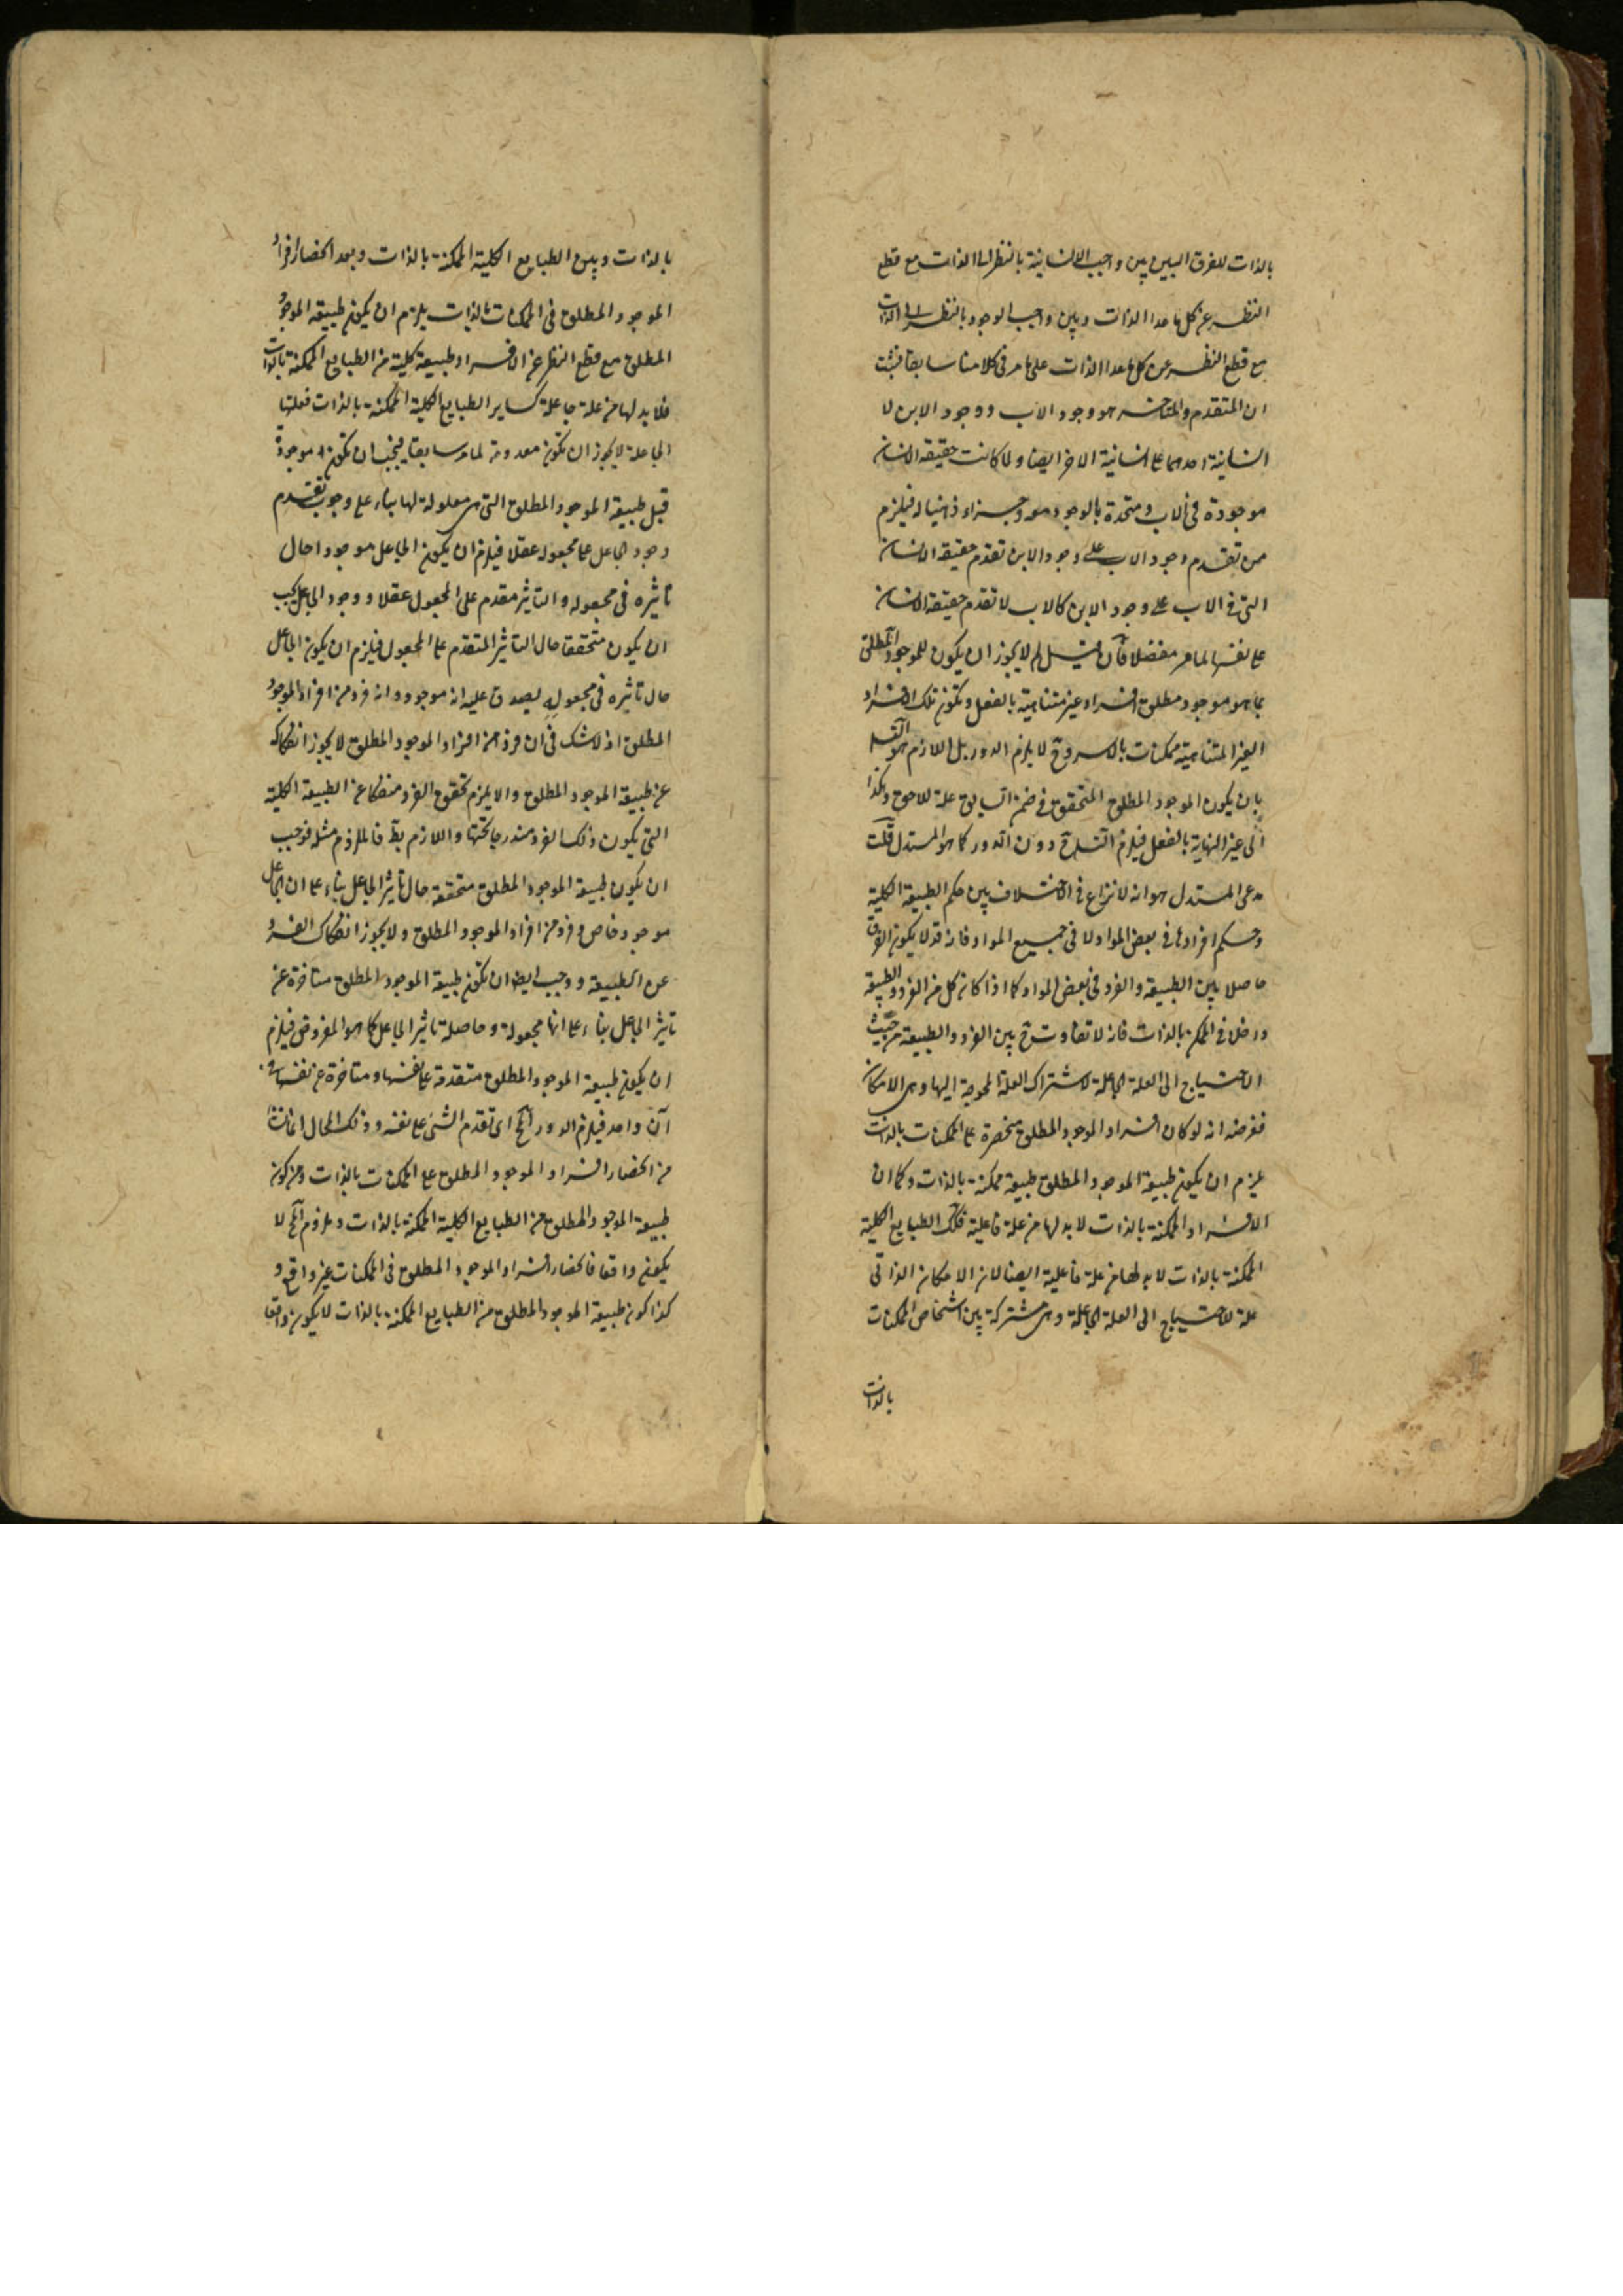 بالذات للفرق البين بين واجب الانسانية بالنظر الى الذات مع قطع
النظر عن كل ما عدا الذات وبين واجب الوجود بالنظر الى الذات
مع قطع النظر عن كل ما عدا الذات على ما مر فى كلامنا سابقا فثبت
ان المتقدم والمتاخر هو وجود الاب ووجود الابن لا
انسانية احدهما على انسانية الاخر ايضا ولما كانت حقيقة الانسان
موجودة فى الاب ومتحدة بالوجود معه وجزء ذهنيا له فيلزم
من تقدم وجود الاب على وجود الابن تقدم حقيقة الانسان
التى فى الاب على وجود الابن كالاب لا تقدم حقيقة الانسان
على نفسها لما مر مفصلا فان قيل لم لا يجوز ان يكون للموجود المطلق
بما هو موجود مطلق افراد غير متناهية بالفعل وتكون تلك الافراد
الغير المتناهية ممكنات بالاسر وح لا يلزم الدور بل اللازم هو التس
بان يكون الموجود المطلق المتحقق فى ضمن السابق علة للاحق وهكذا
الى غير النهاية بالفعل فيلزم التس ح دون الدور كما هو المستدل قلت
مدعى المستدل هو انه لا نزاع فى الاختلاف بين حكم الطبيعة الكلية
وحكم افرادها فى بعض المواد لا فى جميع المواد فانه قد لا يكون الفرق
حاصلا بين الطبيعة والفرد فى بعض المواد كما اذا كان كل من الفرد والطبيعة
داخلا فى الممكن بالذات فانه لا تفاوت ح بين الفرد والطبيعة من حيث
الاحتياج الى العلة الجاعلة لاشتراك العلة المحوجة اليها وهى الامكان
فغرضه انه لو كان افراد الموجود المطلق منحصرة على الممكنات بالذات
يلزم ان يكون طبيعة الموجود المطلق طبيعة ممكنة بالذات وكما ان
الافراد الممكنة بالذات لا بد لها من علة فاعلية فكك الطبايع الكلية
الممكنة بالذات لا بد لها من علة فاعلية ايضا لان الامكان الذاتى
علة للاحتياج الى العلة الجاعلة وهى مشتركة بين اشخاص الممكنات
بالذات
بالذات وبين الطبايع الكلية الممكنة بالذات وبعد انحصار افراد
الموجود المطلق فى الممكنات بالذات يلزم ان يكون طبيعة الموجود
المطلق مع قطع النظر عن الافراد طبيعة كلية من الطبايع الممكنة بالذات
فلا بد لها من علة جاعلة كساير الطبايع الكلية الممكنة بالذات فعلتها
الجاعلة لا يجوز ان تكون معدومة لما مر سابقا فيجب ان تكون موجودة
قبل طبيعة الموجود المطلق التى هى معلولة لها بناء على وجوب تقدم
وجود الجاعل على مجعوله عقلا فيلزم ان يكون الجاعل موجودا حال
تاثيره فى مجعوله والتاثير مقدم على المجعول عقلا ووجود الجاعل يجب
ان يكون متحققا حال التاثير المتقدم على المجعول فيلزم ان يكون الجاعل
حال تاثيره فى مجعوله يصدق عليه انه موجود وانه فرد من افراد الموجود
المطلق اذ لا شك فى ان فردا من افراد الموجود المطلق لا يجوز انفكاكه
عن طبيعة الموجود المطلق والا يلزم تحقق الفرد منفكا عن الطبيعة الكلية
التى يكون ذلك الفرد مندرجا تحتها واللازم بط فالملزوم مثله فوجب
ان يكون طبيعة الموجود المطلق متحققة حال تاثير الجاعل بناء على ان الجاعل
موجود خاص وفرد من افراد الموجود المطلق ولا يجوز انفكاك الفرد
عن الطبيعة ووجب ايضا ان تكون طبيعة الموجود المطلق متاخرة عن
تاثير الجاعل بناء على انها مجعولة وحاصلة تاثير الجاعل كما هو المفروض فيلزم
ان يكون طبيعة الموجود المطلق متقدمة على نفسها ومتاخرة عن نفسها فى
آن واحد فيلزم الدور المح اى تقدم الشئ على نفسه وذلك المحال انما نشأ
من انحصار افراد الموجود المطلق على الممكنات بالذات ومن كون
طبيعة الموجود المطلق من الطبايع الكلية الممكنة بالذات وملزوم المح لا
يكون واقعا فانحصار افراد الموجود المطلق فى الممكنات غير واقع و
كذا كون طبيعة الموجود المطلق من الطبايع الممكنة بالذات لا يكون واقعا